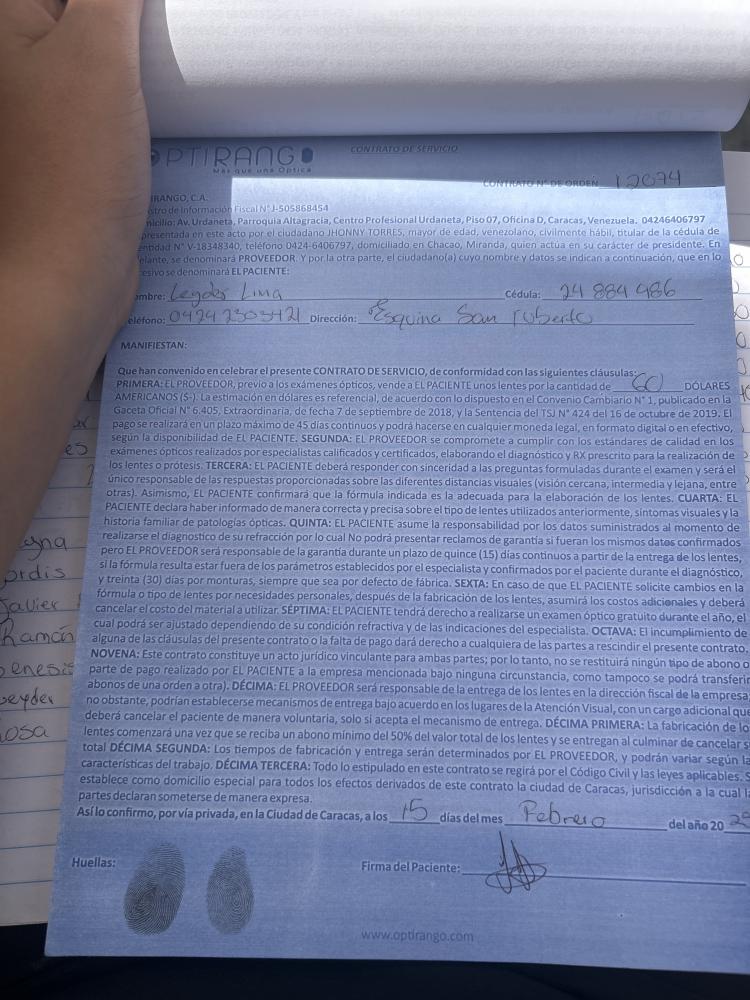 OPTIRANGO
Más que una Óptica
CONTRATO DE SERVICIO
CONTRATO Nº DE ORDEN 12074
IRANGO, C.A.
stro de Información Fiscal Nº J-505868454
nicilio: Av. Urdaneta, Parroquia Altagracia, Centro Profesional Urdaneta, Piso 07, Oficina D, Caracas, Venezuela. 04246406797
presentada en este acto por el ciudadano JHONNY TORRES, mayor de edad, venezolano, civilmente hábil, titular de la cédula de
entidad Nº V-18348340, teléfono 0424-6406797, domiciliado en Chacao, Miranda, quien actúa en su carácter de presidente. En
elante, se denominará PROVEEDOR. Y por la otra parte, el ciudadano(a) cuyo nombre y datos se indican a continuación, que en lo
cesivo se denominará EL PACIENTE:
ombre: Leyder Lima Cédula: 24 884 486
eléfono: 0424 2303421 Dirección: Esquina San ruberto
MANIFIESTAN:
Que han convenido en celebrar el presente CONTRATO DE SERVICIO, de conformidad con las siguientes cláusulas:
PRIMERA: EL PROVEEDOR, previo a los exámenes ópticos, vende a EL PACIENTE unos lentes por la cantidad de 60 DÓLARES
AMERICANOS ($-). La estimación en dólares es referencial, de acuerdo con lo dispuesto en el Convenio Cambiario Nº 1, publicado en la
Gaceta Oficial Nº 6.405, Extraordinaria, de fecha 7 de septiembre de 2018, y la Sentencia del TSJ Nº 424 del 16 de octubre de 2019. El
pago se realizará en un plazo máximo de 45 días continuos y podrá hacerse en cualquier moneda legal, en formato digital o en efectivo,
según la disponibilidad de EL PACIENTE. SEGUNDA: EL PROVEEDOR se compromete a cumplir con los estándares de calidad en los
exámenes ópticos realizados por especialistas calificados y certificados, elaborando el diagnóstico y RX prescrito para la realización de
los lentes o prótesis. TERCERA: EL PACIENTE deberá responder con sinceridad a las preguntas formuladas durante el examen y será el
único responsable de las respuestas proporcionadas sobre las diferentes distancias visuales (visión cercana, intermedia y lejana, entre
otras). Asimismo, EL PACIENTE confirmará que la fórmula indicada es la adecuada para la elaboración de los lentes. CUARTA: EL
PACIENTE declara haber informado de manera correcta y precisa sobre el tipo de lentes utilizados anteriormente, síntomas visuales y la
historia familiar de patologías ópticas. QUINTA: EL PACIENTE asume la responsabilidad por los datos suministrados al momento de
realizarse el diagnostico de su refracción por lo cual No podrá presentar reclamos de garantía si fueran los mismos datos confirmados
pero EL PROVEEDOR será responsable de la garantía durante un plazo de quince (15) días continuos a partir de la entrega de los lentes,
si la fórmula resulta estar fuera de los parámetros establecidos por el especialista y confirmados por el paciente durante el diagnóstico,
y treinta (30) días por monturas, siempre que sea por defecto de fábrica. SEXTA: En caso de que EL PACIENTE solicite cambios en la
fórmula o tipo de lentes por necesidades personales, después de la fabricación de los lentes, asumirá los costos adicionales y deberá
cancelar el costo del material a utilizar. SÉPTIMA: EL PACIENTE tendrá derecho a realizarse un examen óptico gratuito durante el año, el
cual podrá ser ajustado dependiendo de su condición refractiva y de las indicaciones del especialista. OCTAVA: El incumplimiento de
alguna de las cláusulas del presente contrato o la falta de pago dará derecho a cualquiera de las partes a rescindir el presente contrato.
NOVENA: Este contrato constituye un acto jurídico vinculante para ambas partes; por lo tanto, no se restituirá ningún tipo de abono o
parte de pago realizado por EL PACIENTE a la empresa mencionada bajo ninguna circunstancia, como tampoco se podrá transferir
abonos de una orden a otra). DÉCIMA: EL PROVEEDOR será responsable de la entrega de los lentes en la dirección fiscal de la empresa,
no obstante, podrían establecerse mecanismos de entrega bajo acuerdo en los lugares de la Atención Visual, con un cargo adicional que
deberá cancelar el paciente de manera voluntaria, solo si acepta el mecanismo de entrega. DÉCIMA PRIMERA: La fabricación de lo
lentes comenzará una vez que se reciba un abono mínimo del 50% del valor total de los lentes y se entregan al culminar de cancelar s
total DÉCIMA SEGUNDA: Los tiempos de fabricación y entrega serán determinados por EL PROVEEDOR, y podrán variar según la
características del trabajo. DÉCIMA TERCERA: Todo lo estipulado en este contrato se regirá por el Código Civil y las leyes aplicables. S
establece como domicilio especial para todos los efectos derivados de este contrato la ciudad de Caracas, jurisdicción a la cual la
partes declaran someterse de manera expresa.
Así lo confirmo, por vía privada, en la Ciudad de Caracas, a los 15 días del mes Febrero del año 20 25
Huellas: Firma del Paciente:
www.optirango.com
ordis
Javier
Ramón
enesis
eyder
osa